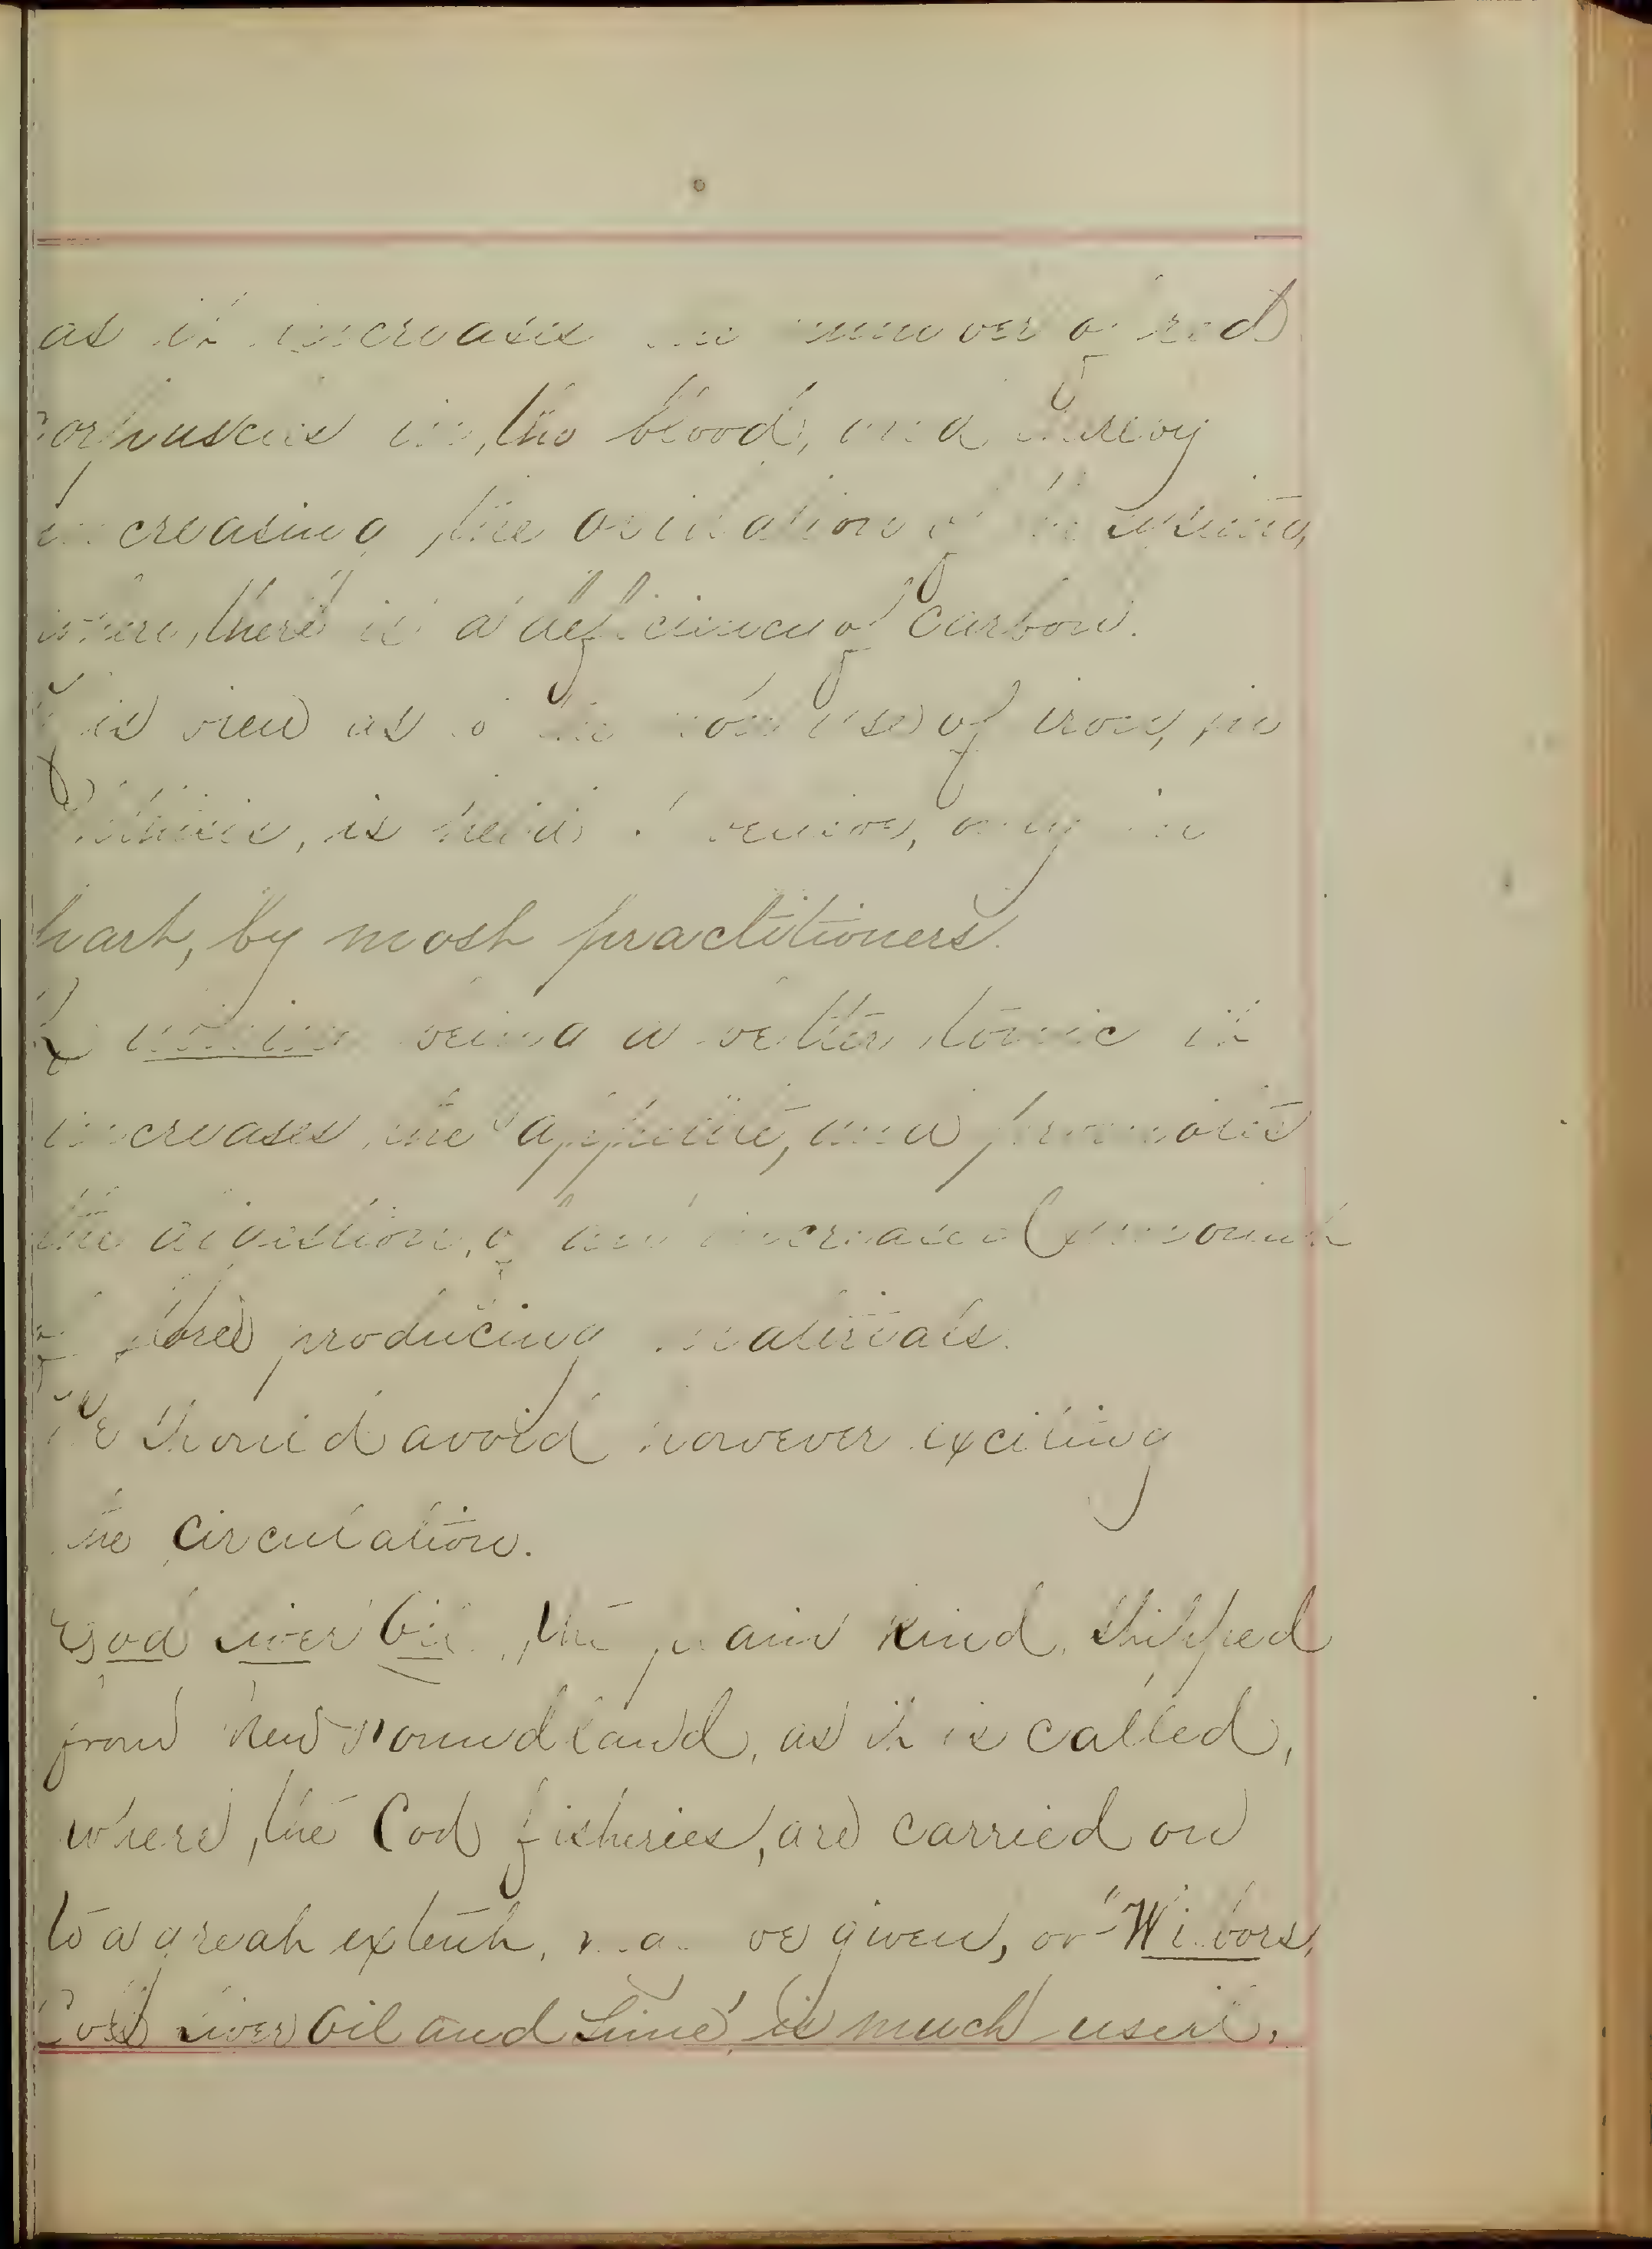 as it increases the number of red
corpuscles in the blood, and thereby
increasing the oxidation of the system,
where there is a deficiency of carbon.
This view as to the non use of iron, in
Phthisis, is held, only in
part, by most practitioners.
being a better tonic it
increases the appetite, and promotes
the digestion, of an increased amount
of force producing materials.
We should avoid however exciting
the circulation.
Cod Liver Oil. The plain kind, shipped
from New Foundland, as it is called,
where the Cod fisheries, are carried on
to a great extent, may be given, or "Wilbors,
Cod Liver Oil and Lime" is much used.